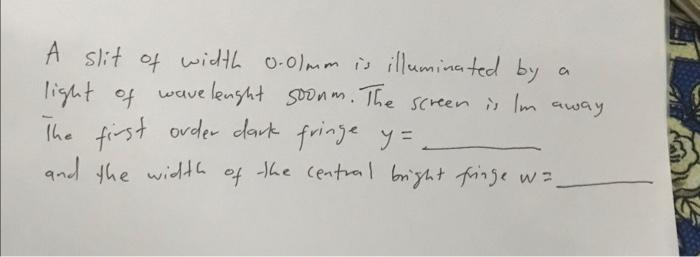 A slit of width 0.01mm is illuminated by a
light of wavelenght 500nm. The screen is 1m away
The first order dark fringe y = ________
and the width of the central bright fringe w = ________